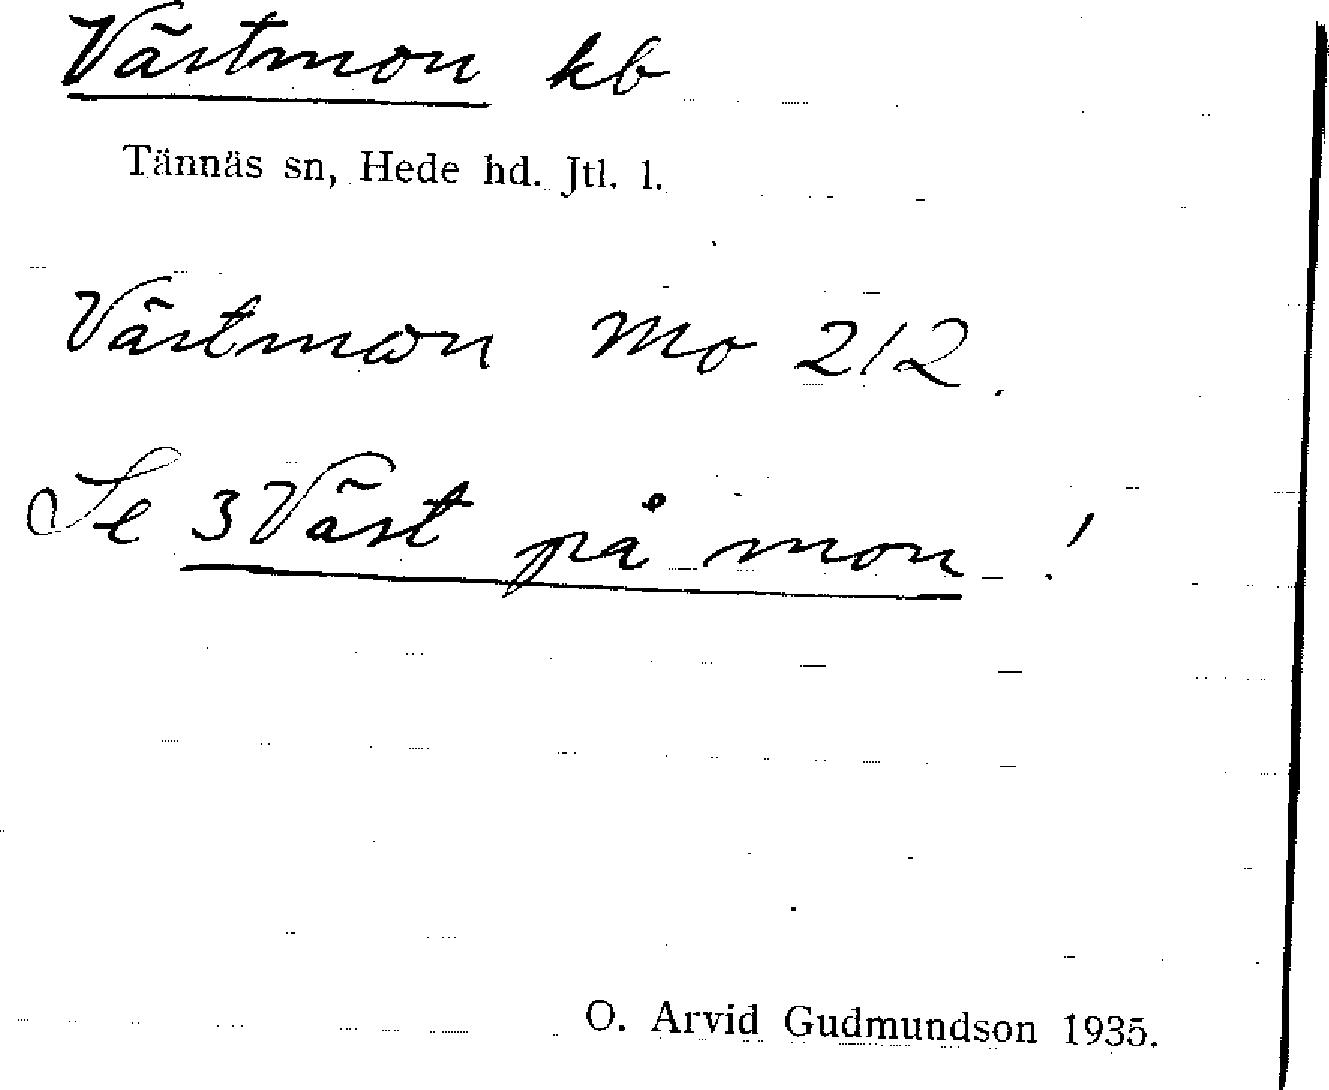 Västmon kb
Tännäs sn, Hede hd. Jtl. l.
Västmon Mo 2/2.
Se 3 Väst på mon !
O. Arvid Gudmundson 1935.